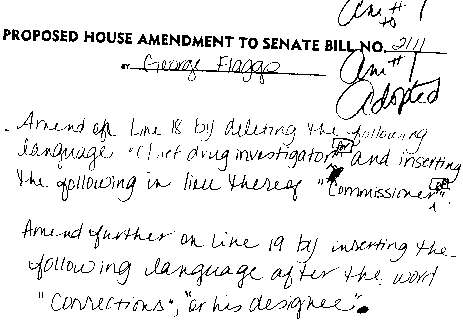 Am #1
to
PROPOSED HOUSE AMENDMENT TO SENATE BILL NO. 2111
BY George Flaggs
Am #1
Adopted
Amend on line 18 by deleting the following
language "Chief drug investigator" and inserting
the following in lieu thereof "Commissioner".
Amend further on line 19 by inserting the
following language after the word
"Corrections", "or his designee".